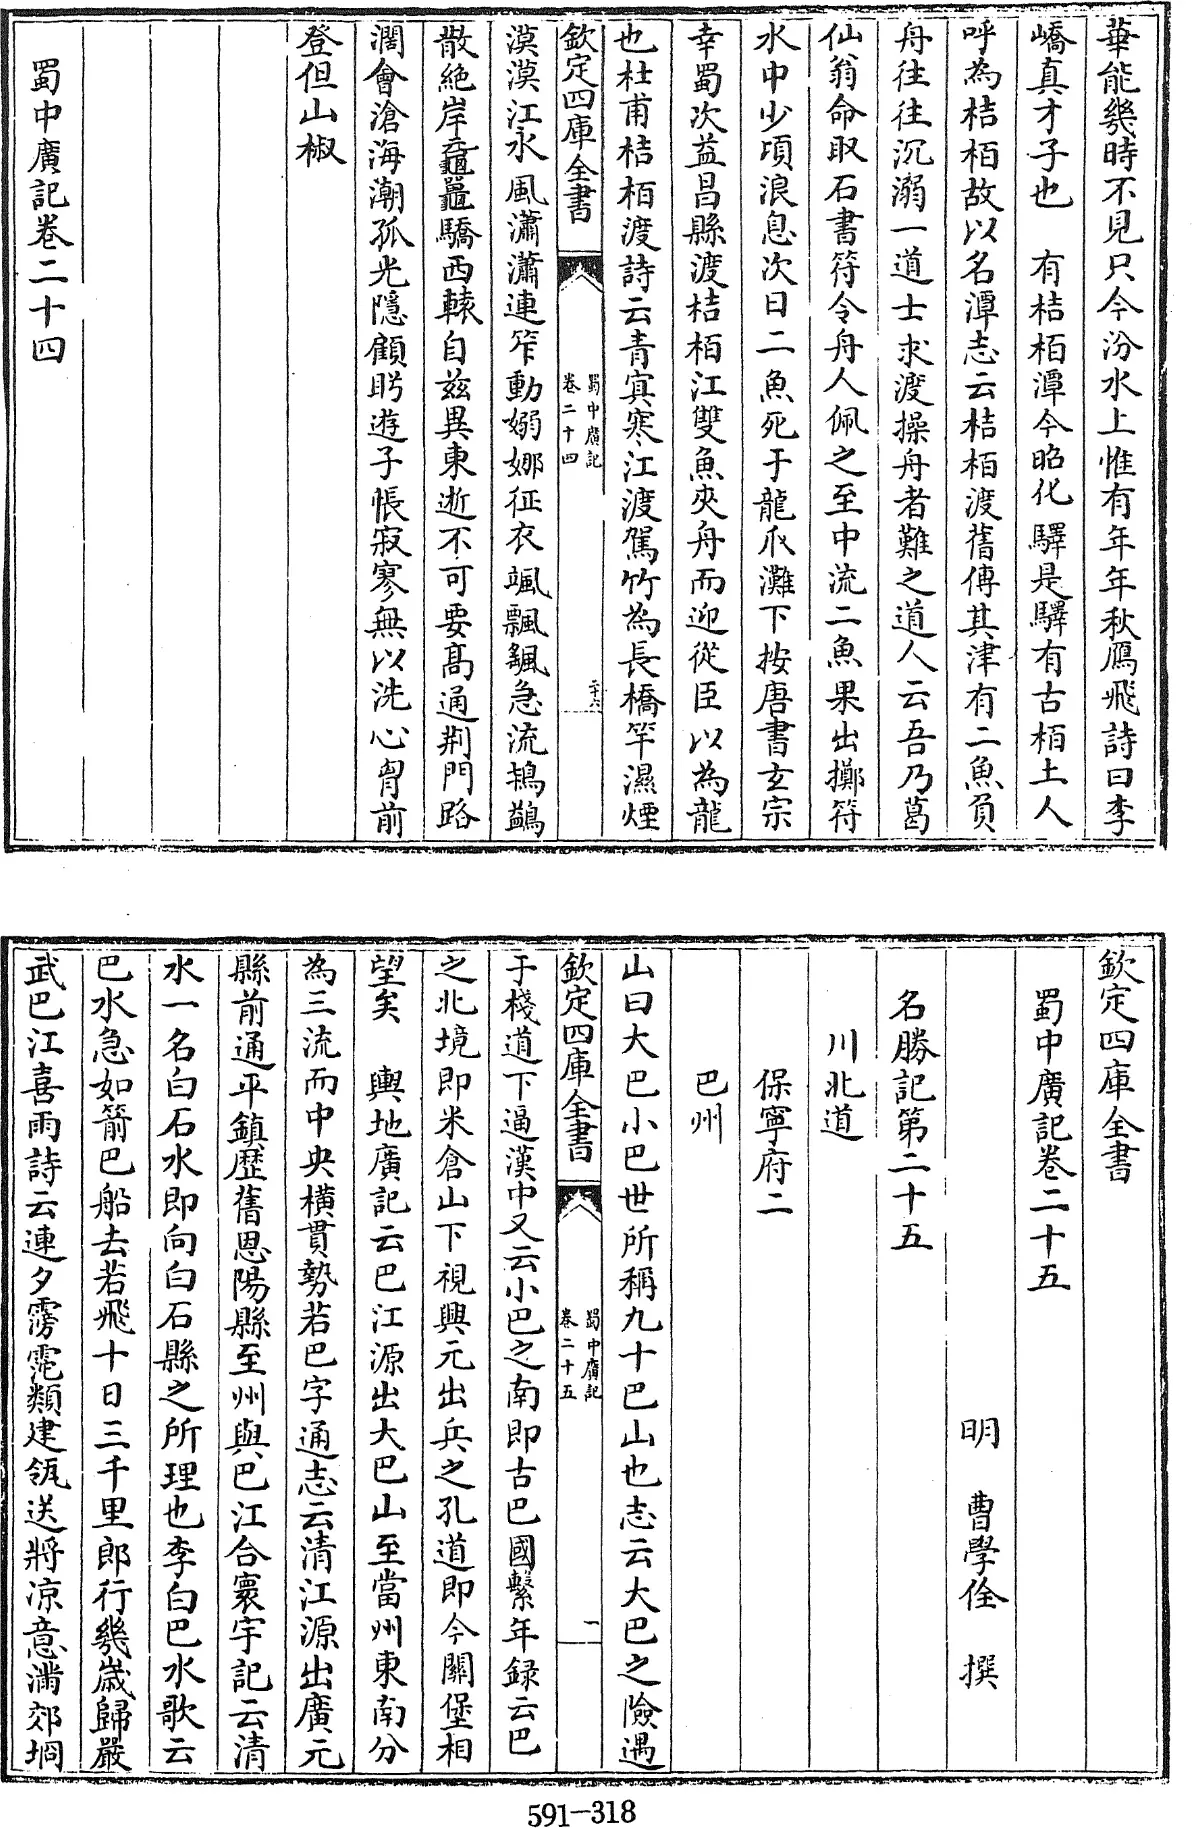 華能幾時不見只今汾水上惟有年年秋鴈飛詩曰李
嶠真才子也　有桔柏潭今昭化驛是驛有古栢土人
呼為桔栢故以名潭志云桔栢渡舊傳其津有二魚負
舟往往沉溺一道士求渡操舟者難之道人云吾乃葛
仙翁命取石書符令舟人佩之至中流二魚果出擲符
水中少頃浪息次日二魚死于龍爪灘下按唐書玄宗
幸蜀次益昌縣渡桔栢江雙魚夾舟而迎從臣以為龍
也杜甫桔栢渡詩云青冥寒江渡駕竹為長橋竿濕煙
欽定四庫全書
蜀中廣記
卷二十四
二十六
漠漠江永風瀟瀟連笮動嫋娜征衣颯飄颻急流鴇鷁
散絶岸黿鼉驕西轅自茲異東逝不可要髙通荆門路
濶會滄海潮孤光隱顧眄遊子悵寂寥無以洗心胷前
登但山椒
蜀中廣記卷二十四
欽定四庫全書
蜀中廣記卷二十五
明　曹學佺　撰
名勝記第二十五
川北道
保寧府二
巴州
山曰大巴小巴世所稱九十巴山也志云大巴之險過
欽定四庫全書
蜀中廣記
卷二十五
一
于棧道下逼漢中又云小巴之南即古巴國繫年録云巴
之北境即米倉山下視興元出兵之孔道即今關堡相
望矣　輿地廣記云巴江源出大巴山至當州東南分
為三流而中央橫貫勢若巴字通志云清江源出廣元
縣前通平鎮歷舊恩陽縣至州與巴江合寰宇記云清
水一名白石水即向白石縣之所理也李白巴水歌云
巴水急如箭巴船去若飛十日三千里郎行幾歲歸嚴
武巴江喜雨詩云連夕霶霑類建瓴送將凉意滿郊坰
591-318